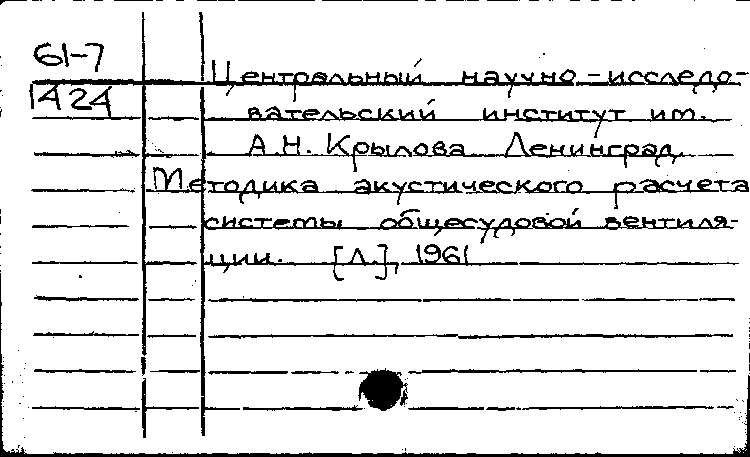 61-7
Центральный научно-исследо-
1424
вательский институт им.
А.Н. Крылова Ленинград
Методика акустического расчета
системы общесудовой вентиля-
ции. [Л.], 1961